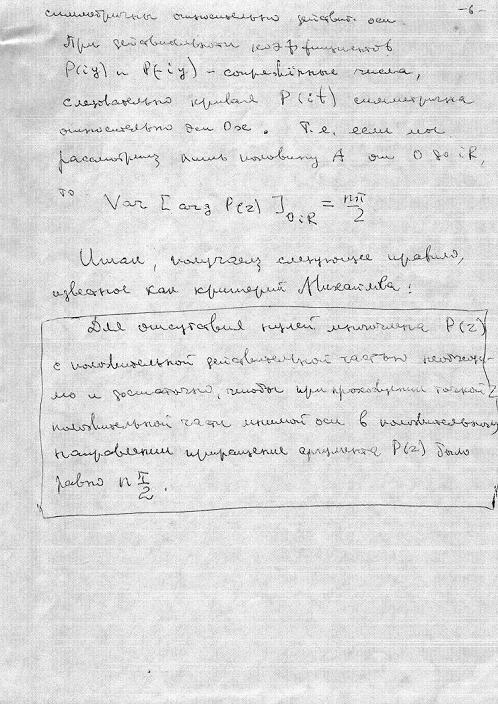 -6-
симметричны относительно действит. оси.
При действительности коэффициентов
P(iy) и P(-iy) - сопряжённые числа,
следовательно кривая P(it) симметрична
относительно оси Ox. Т.е. если мы
рассмотрим лишь половину A от 0 до iR,
то Var [arg P(z)]_{0iR} = nπ/2
Итак, получаем следующее правило,
известное как критерий Михайлова:
Для отсутствия нулей многочлена P(z)
с положительной действительной частью необходи-
мо и достаточно, чтобы при прохождении точкой z
положительной части мнимой оси в положительном
направлении приращение аргумента P(z) было
равно n π/2.